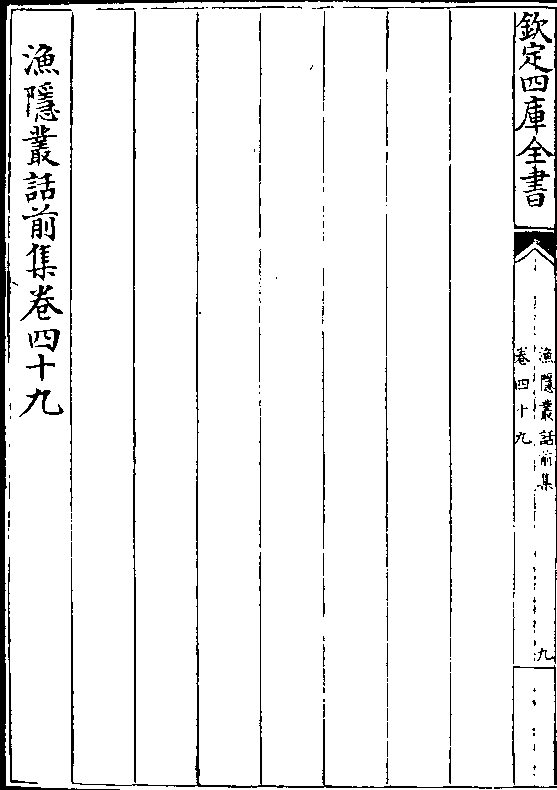 欽定四庫全書
漁隱叢話前集
卷四十九
九
漁隱叢話前集卷四十九